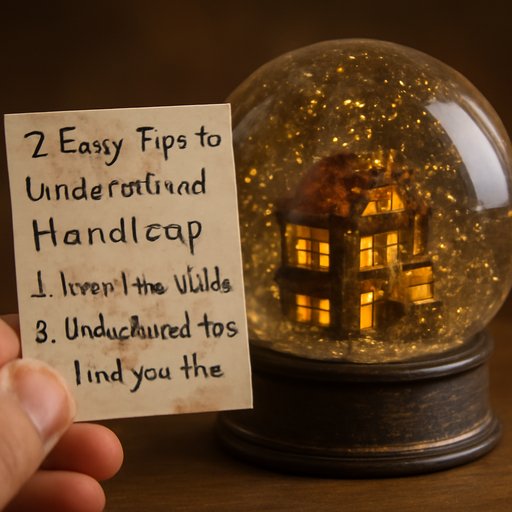 2 Eassy Fips to
Underortirad
Handlcap
1. Iverp l the Vulds
3. Unduchured tos
lind you the